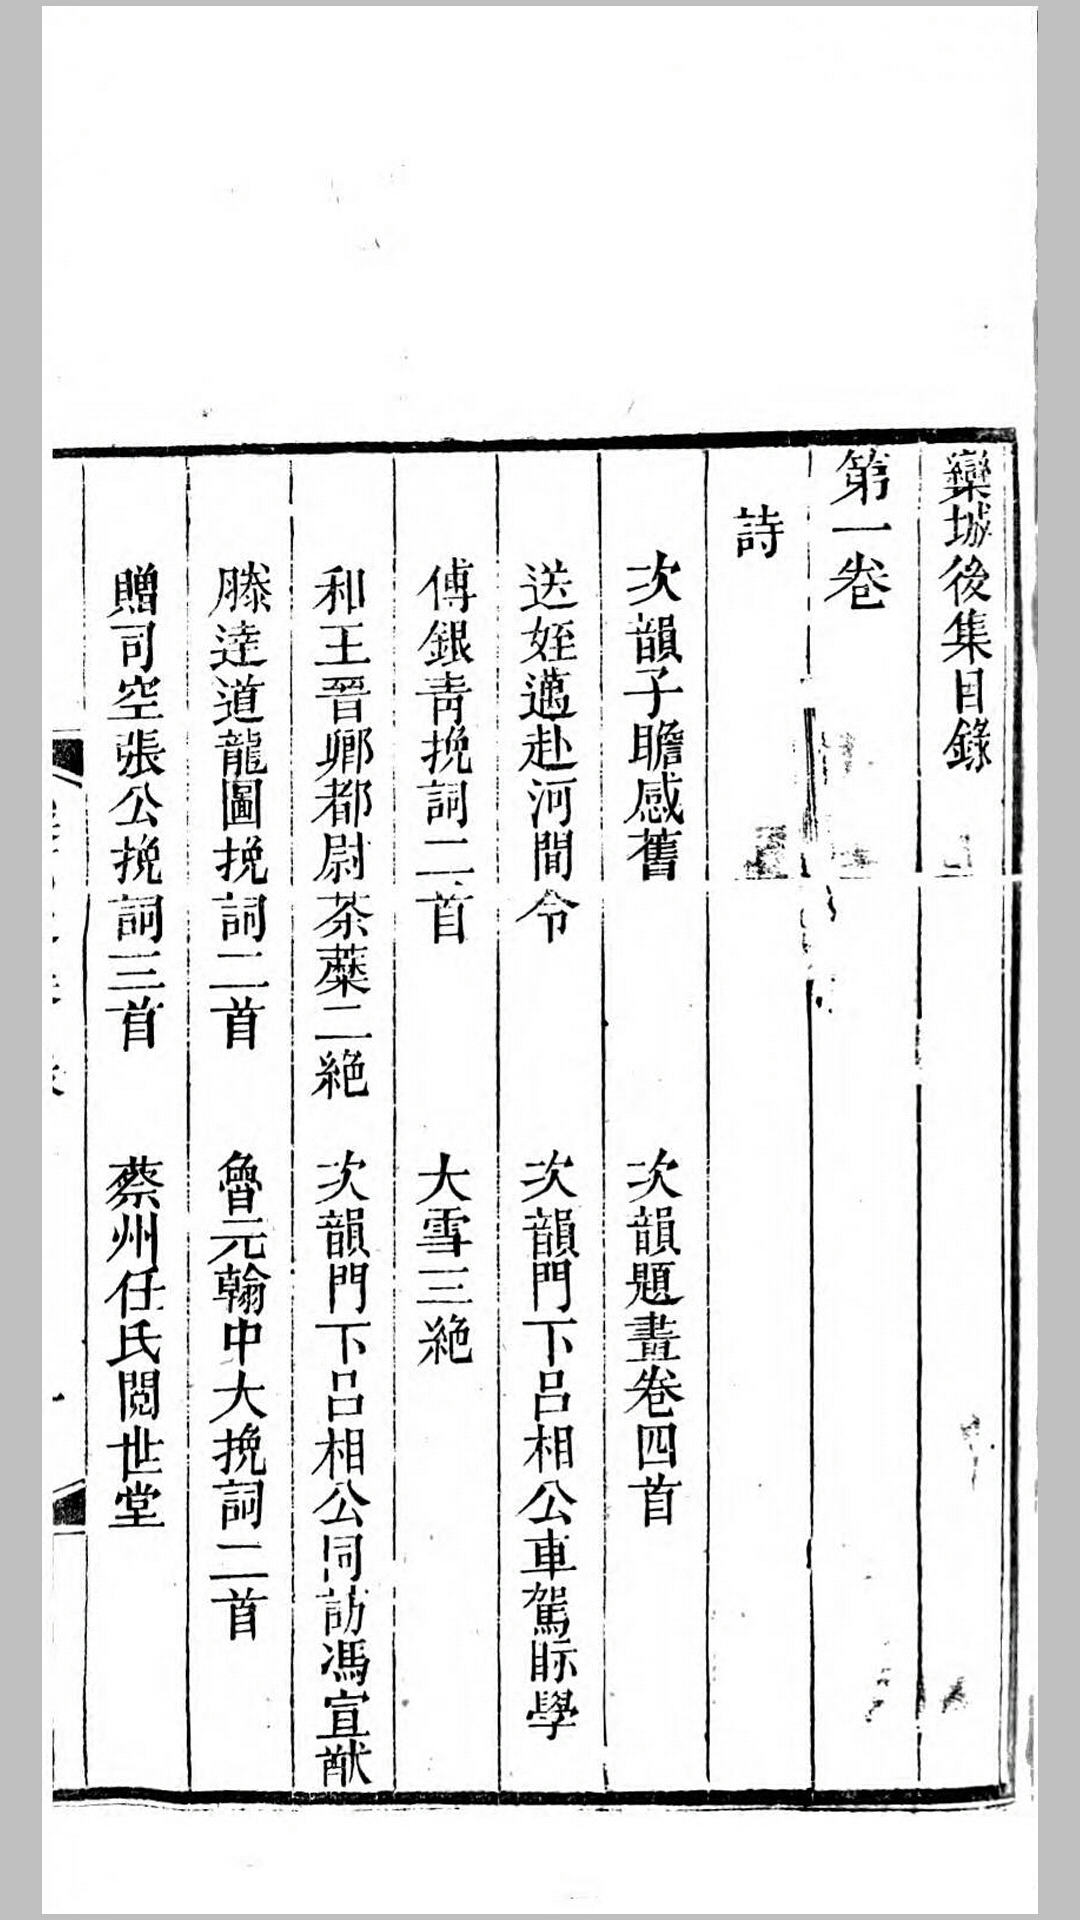 欒城後集目錄
第一卷
詩
次韻子瞻感舊　次韻題畫卷四首
送姪邁赴河間令　次韻門下呂相公車駕眎學
傅銀青挽詞二首　大雪三絶
和王晉卿都尉荼蘼二絶　次韻門下呂相公同訪馮宣猷
滕達道龍圖挽詞二首　魯元翰中大挽詞二首
贈司空張公挽詞三首　蔡州任氏閱世堂